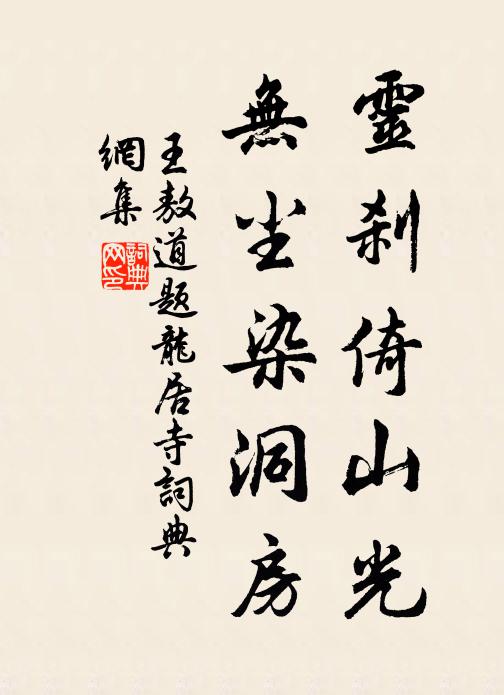 靈刹倚山光
無尘染洞房
王敖道题龍居寺詞典
網集
詞典網印